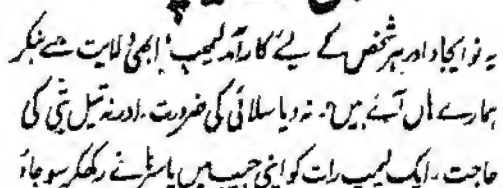 یہ نوایجاد اور ہر شخص کے لئے کارآمد لیمپ ابھی ولایت سے بنکر
ہمارے ہاں آئے ہیں۔ نہ دیا سلائی کی ضرورت۔ اور نہ تیل بتی کی
حاجت۔ ایک لیمپ رات کو اپنی جیب میں یا سرہانے رکھکر سو جاؤ